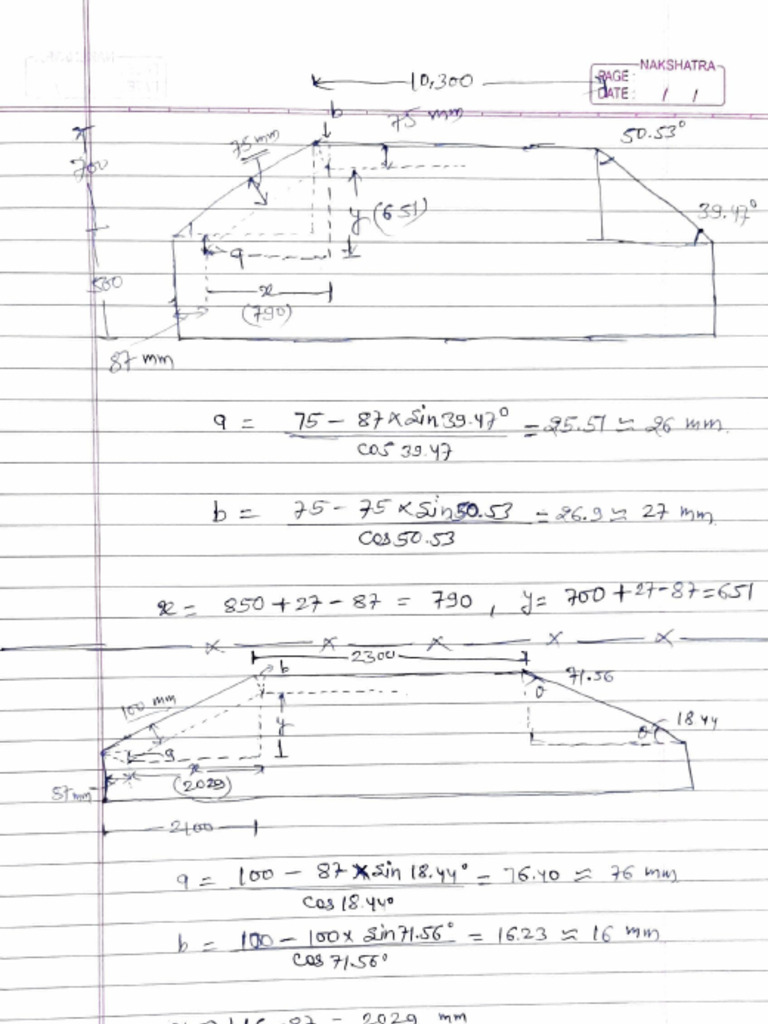 NAKSHATRA
PAGE:
DATE: / /
10,300
b
75 mm
75 mm
50.53°
700
y (651)
39.47°
a
500
x
(790)
87 mm
a = 75 - 87 × sin 39.47° / cos 39.47 = 25.51 ≈ 26 mm.
b = 75 - 75 × sin 50.53 / cos 50.53 = 26.9 ≈ 27 mm
x = 850 + 27 - 87 = 790 , y = 700 + 27 - 87 = 651
x x x x x
2300
b
71.56
100 mm
θ
y
18.44
θ
a
x
(2029)
57 mm
2100
a = 100 - 87 × sin 18.44° / cos 18.44° = 76.40 ≈ 76 mm
b = 100 - 100 × sin 71.56° / cos 71.56° = 16.23 ≈ 16 mm
16 - 87 = 2029 mm